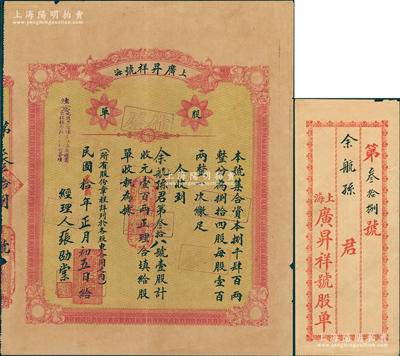 上海陽明拍賣
www.yangmingauction.com
上海廣昇祥號
股
單
本號集合資本捌千肆百兩
整分為捌拾四股每股壹百
兩整一次繳足
今收到
余航孫君第叁拾八號壹股計
收元壹百兩正理合填給股
單收執為據
(所有股份章程詳列於各股東合同之內)
民國拾年正月初五日給
經理人張劭棠
第叁拾捌號
余航孫君
上海廣昇祥號股單